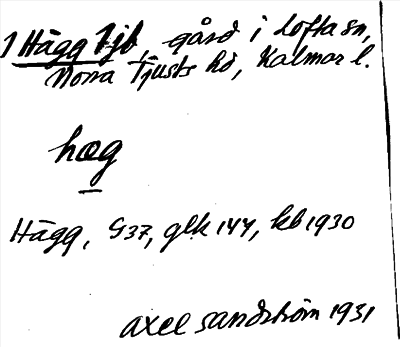 1 Hägg Tjb, gård i Lofta sn,
Norra Tjusts hd, Kalmar l.
hæg
Hägg, G37, glk 144, kb 1930
Axel Sandström 1931